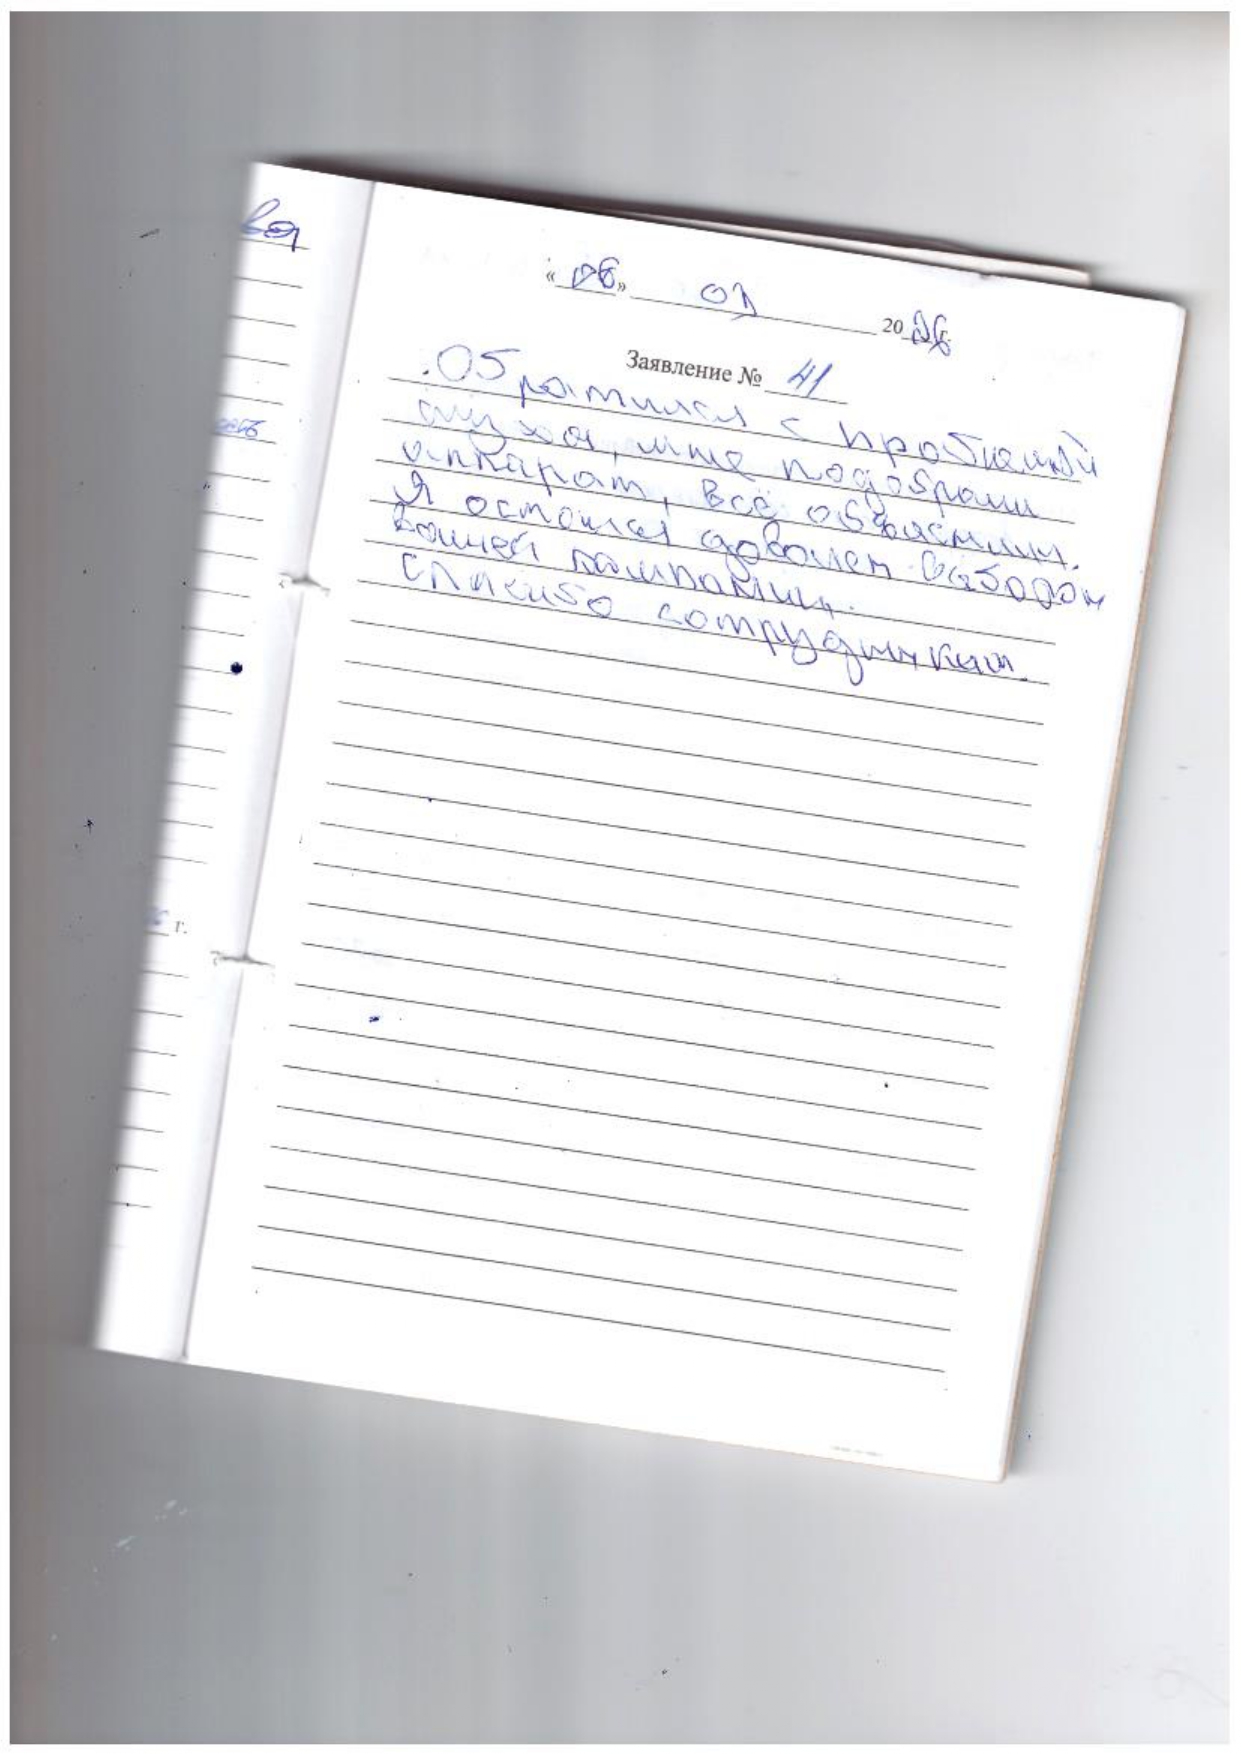 вая
« 06 » 02 2026 г.
Заявление № 41
Обратился с проблемой
слуха, мне подобрали
аппарат, всё объяснили.
Я остался доволен выбором
вашей компании.
Спасибо сотрудникам.
г.